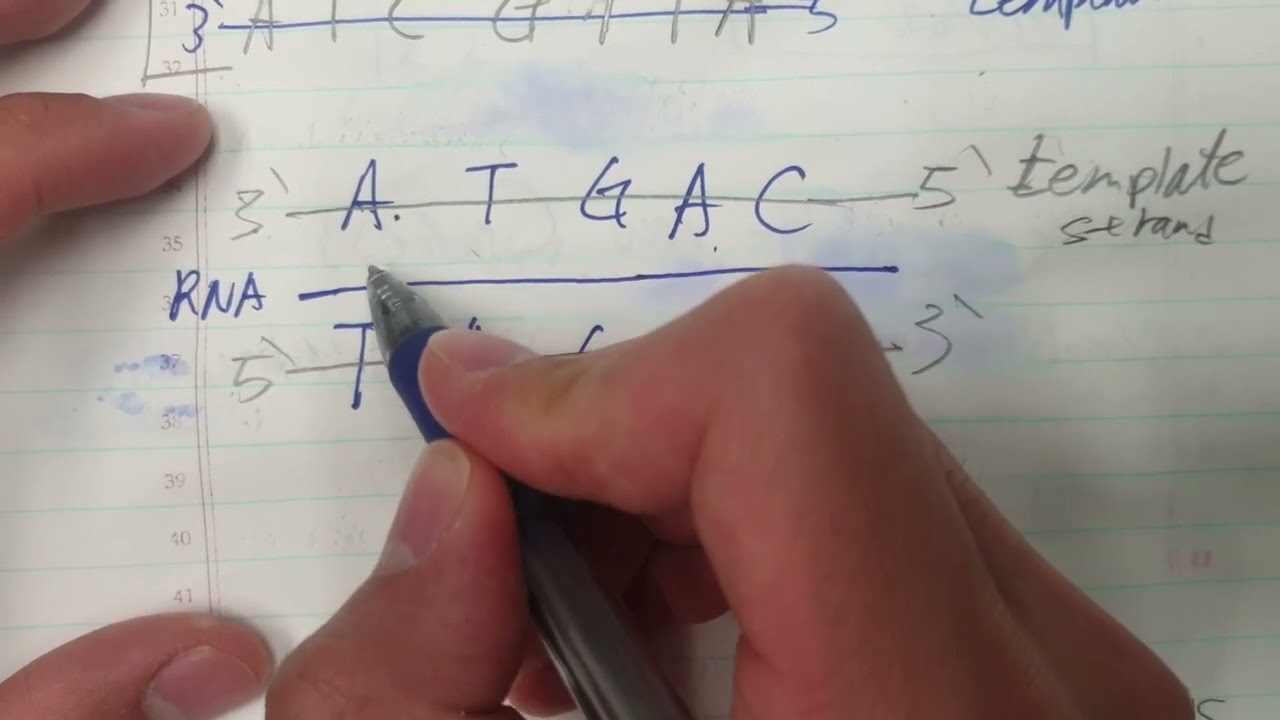 31
3` A T C G A T A 5
32
3` A. T G A C 5` template
strand
35
RNA
5` T 3`
37
38
39
40
41